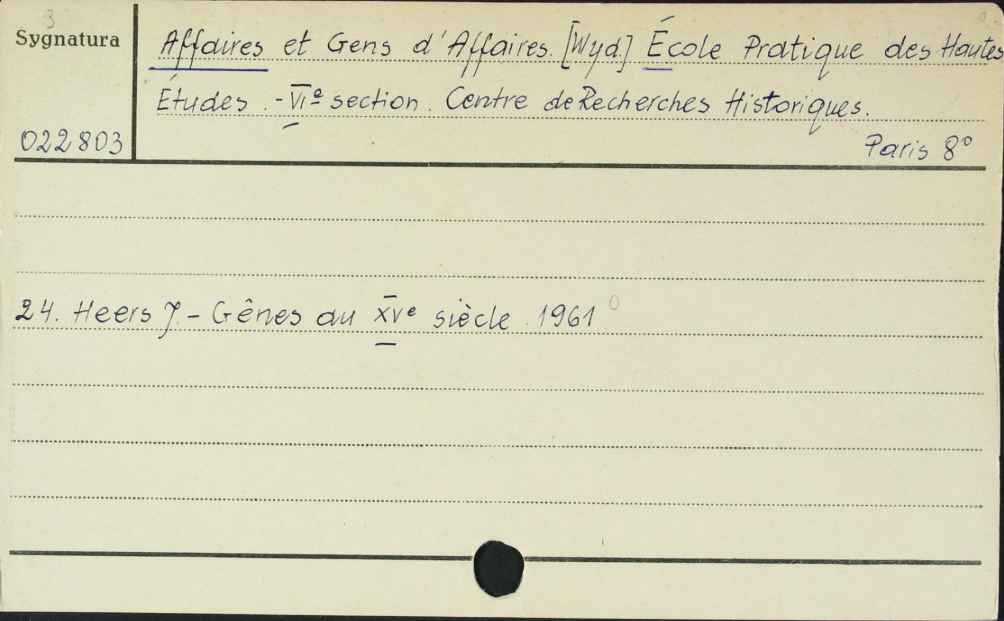 3
Sygnatura
Affaires et Gens d'Affaires. [Wyd.] École Pratique des Hautes
Études. - VIe section. Centre de Recherches Historiques.
022803
Paris 8°
24. Heers J. - Gênes au XVe siècle. 1961